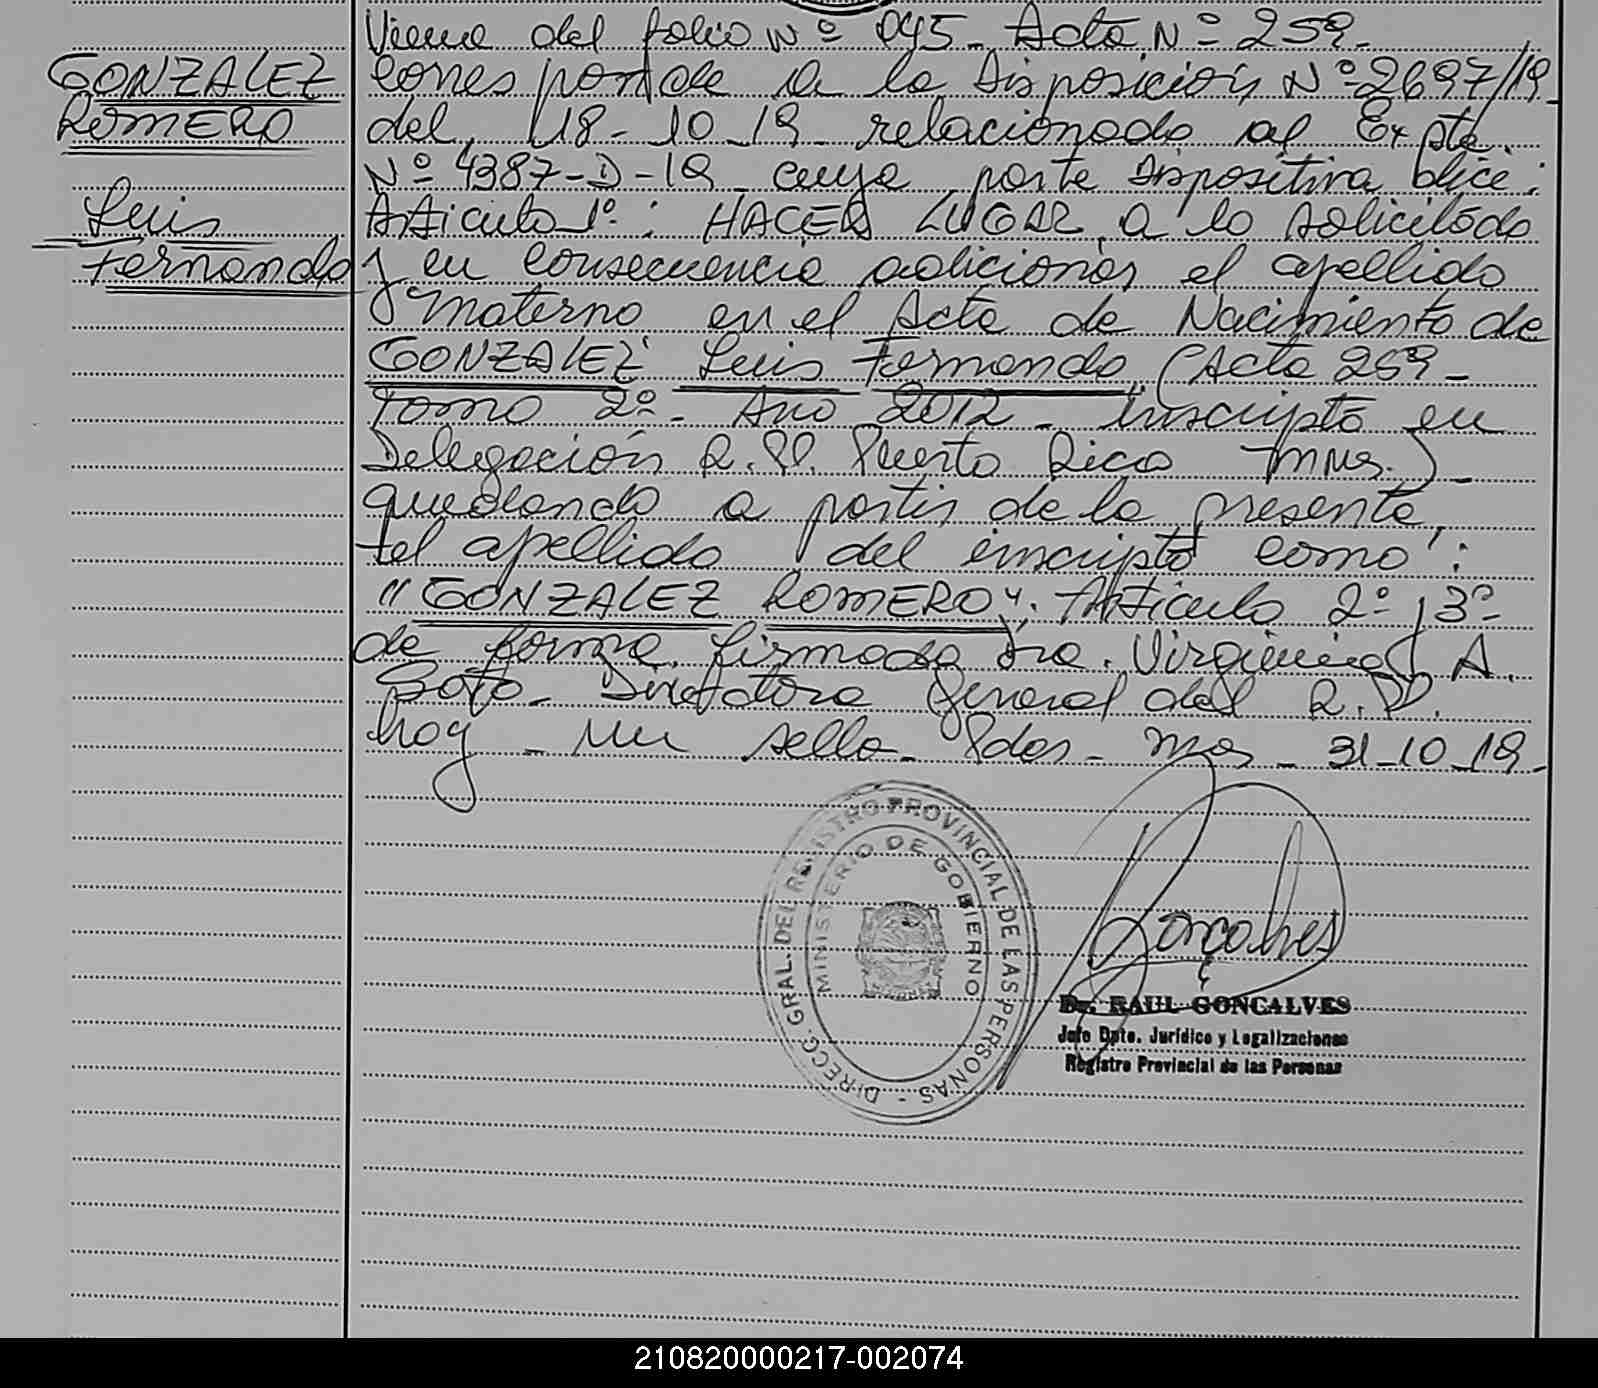 Viene del folio Nº 045. Acta Nº 259.
GONZALEZ
ROMERO
Luis
Fernando
corresponde a la Disposición Nº 2697/19
del 18-10-19 relacionado al Expte.
Nº 4387-D-19 cuya parte dispositiva dice:
Artículo 1º: HACER LUGAR a lo solicitado
y en consecuencia adicionar el apellido
materno en el Acta de Nacimiento de
GONZALEZ Luis Fernando (Acta 259-
Tomo 2º- Año 2012 - inscripto en
Delegación R.P. Puerto Rico Mnes.)
quedando a partir de la presente,
el apellido del inscripto como:
"GONZALEZ ROMERO". Artículo 2º y 3º
de forma. Firmado Dra. Virginia A.
Soto. Directora General del R.P.
hoy - un sello - Pdas - Mnes - 31-10-19.
DIRECC. GRAL. DEL REGISTRO PROVINCIAL DE LAS PERSONAS -
MINISTERIO DE GOBIERNO
Goncalves
Dr. RAUL GONCALVES
Jefe Dpto. Jurídico y Legalizaciones
Registro Provincial de las Personas
210820000217-002074